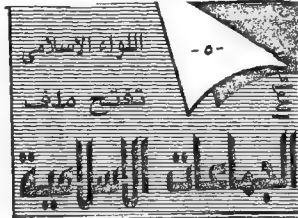 اللواء الاسلامى
-٥-
تفتح ملف
الجماعات الاسلامية